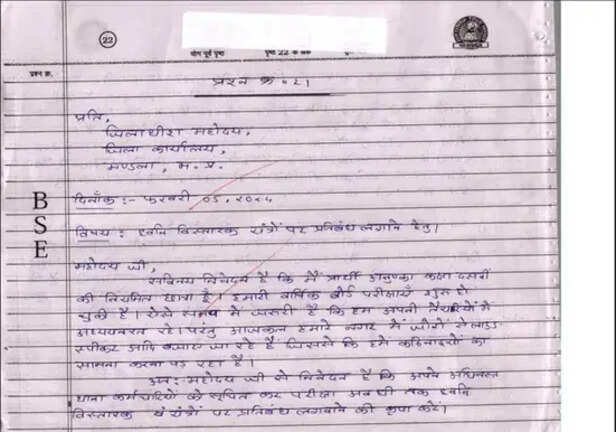 22
योग पूर्व पृष्ठ पृष्ठ 22 के अंक
प्रश्न क्र.
प्रश्न क्र. 21
प्रति,
जिलाधीश महोदय,
जिला कार्यालय,
मण्डला, म. प्र.
BSE
दिनाँक :- फरवरी 05, 2024
विषय : ध्वनि विस्तारक यंत्रों पर प्रतिबंध लगाने हेतु।
महोदय जी,
सविनय निवेदन है कि मैं प्रार्थी अनुष्का कक्षा दसवीं
की नियमित छात्रा हूँ। हमारी वार्षिक बोर्ड परीक्षाएँ शुरू हो
चुकी है। ऐसे समय में जरूरी है कि हम अपनी तैयारियों में
अध्ययनरत रहे। परंतु आजकल हमारे नगर में जोरों से लाउड
स्पीकर आदि बजाए जा रहे है जिससे कि हमें कठिनाइयों का
सामना करना पड़ रहा है।
अतः महोदय जी से निवेदन है कि अपने अधिनस्त
थाना कर्मचारियों को सूचित कर परीक्षा अवधी तक ध्वनि
विस्तारक यंत्रों पर प्रतिबंध लगवाने की कृपा करें।